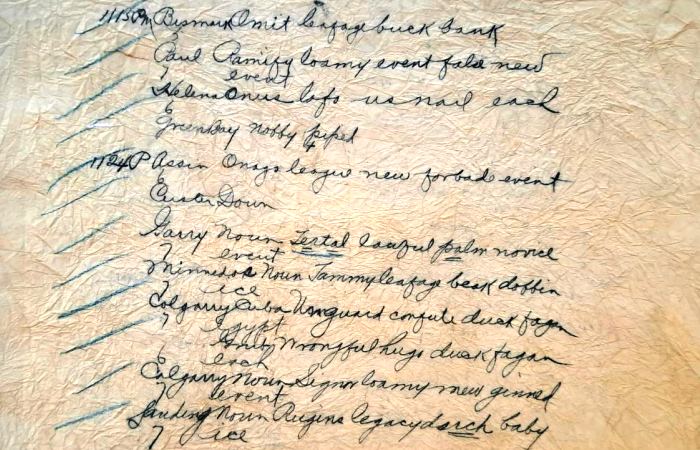 1115Pm Bismark Omit leafage buck bank
E
Paul Ramify loamy event false new
7 event
Helena Onus lofo us nail each
E
Green Bay nobby piped
1124P Assin Onago league new forbade event
E
Custer Down
Garry Noun Tertal lawful palm novice
7 event
Minnedos Noun Jammy leafage beak dobbin
7 ice
Calgarry Cuba Unguard confute duck fagan
7 Egypt
Grub Wrongful hugo duck fagan
E each
Calgarry Noun Signor loamy new ginned
7 event
Landing Noun Rugins legacy dsrch baby
7 ice